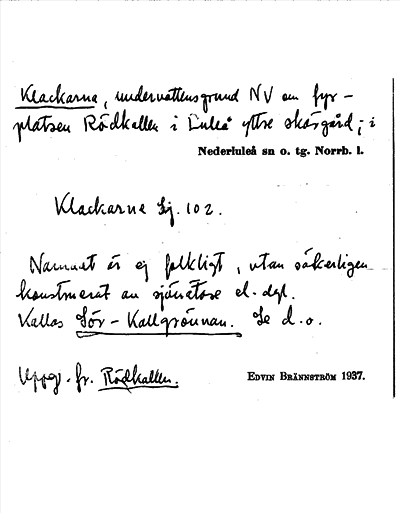 Klackarna, undervattensgrund NV om fyr-
platsen Rödkallen i Luleå yttre skärgård; i
Nederluleå sn o. tg. Norrb. l.
Klackarne Sj. 102.
Namnet är ej folkligt, utan säkerligen
konstruerat av sjömätare el. dyl.
Kallas Sör-Kallgrönnan. Se d. o.
Uppg. fr. Rödkallen.
EDVIN BRÄNNSTRÖM 1937.